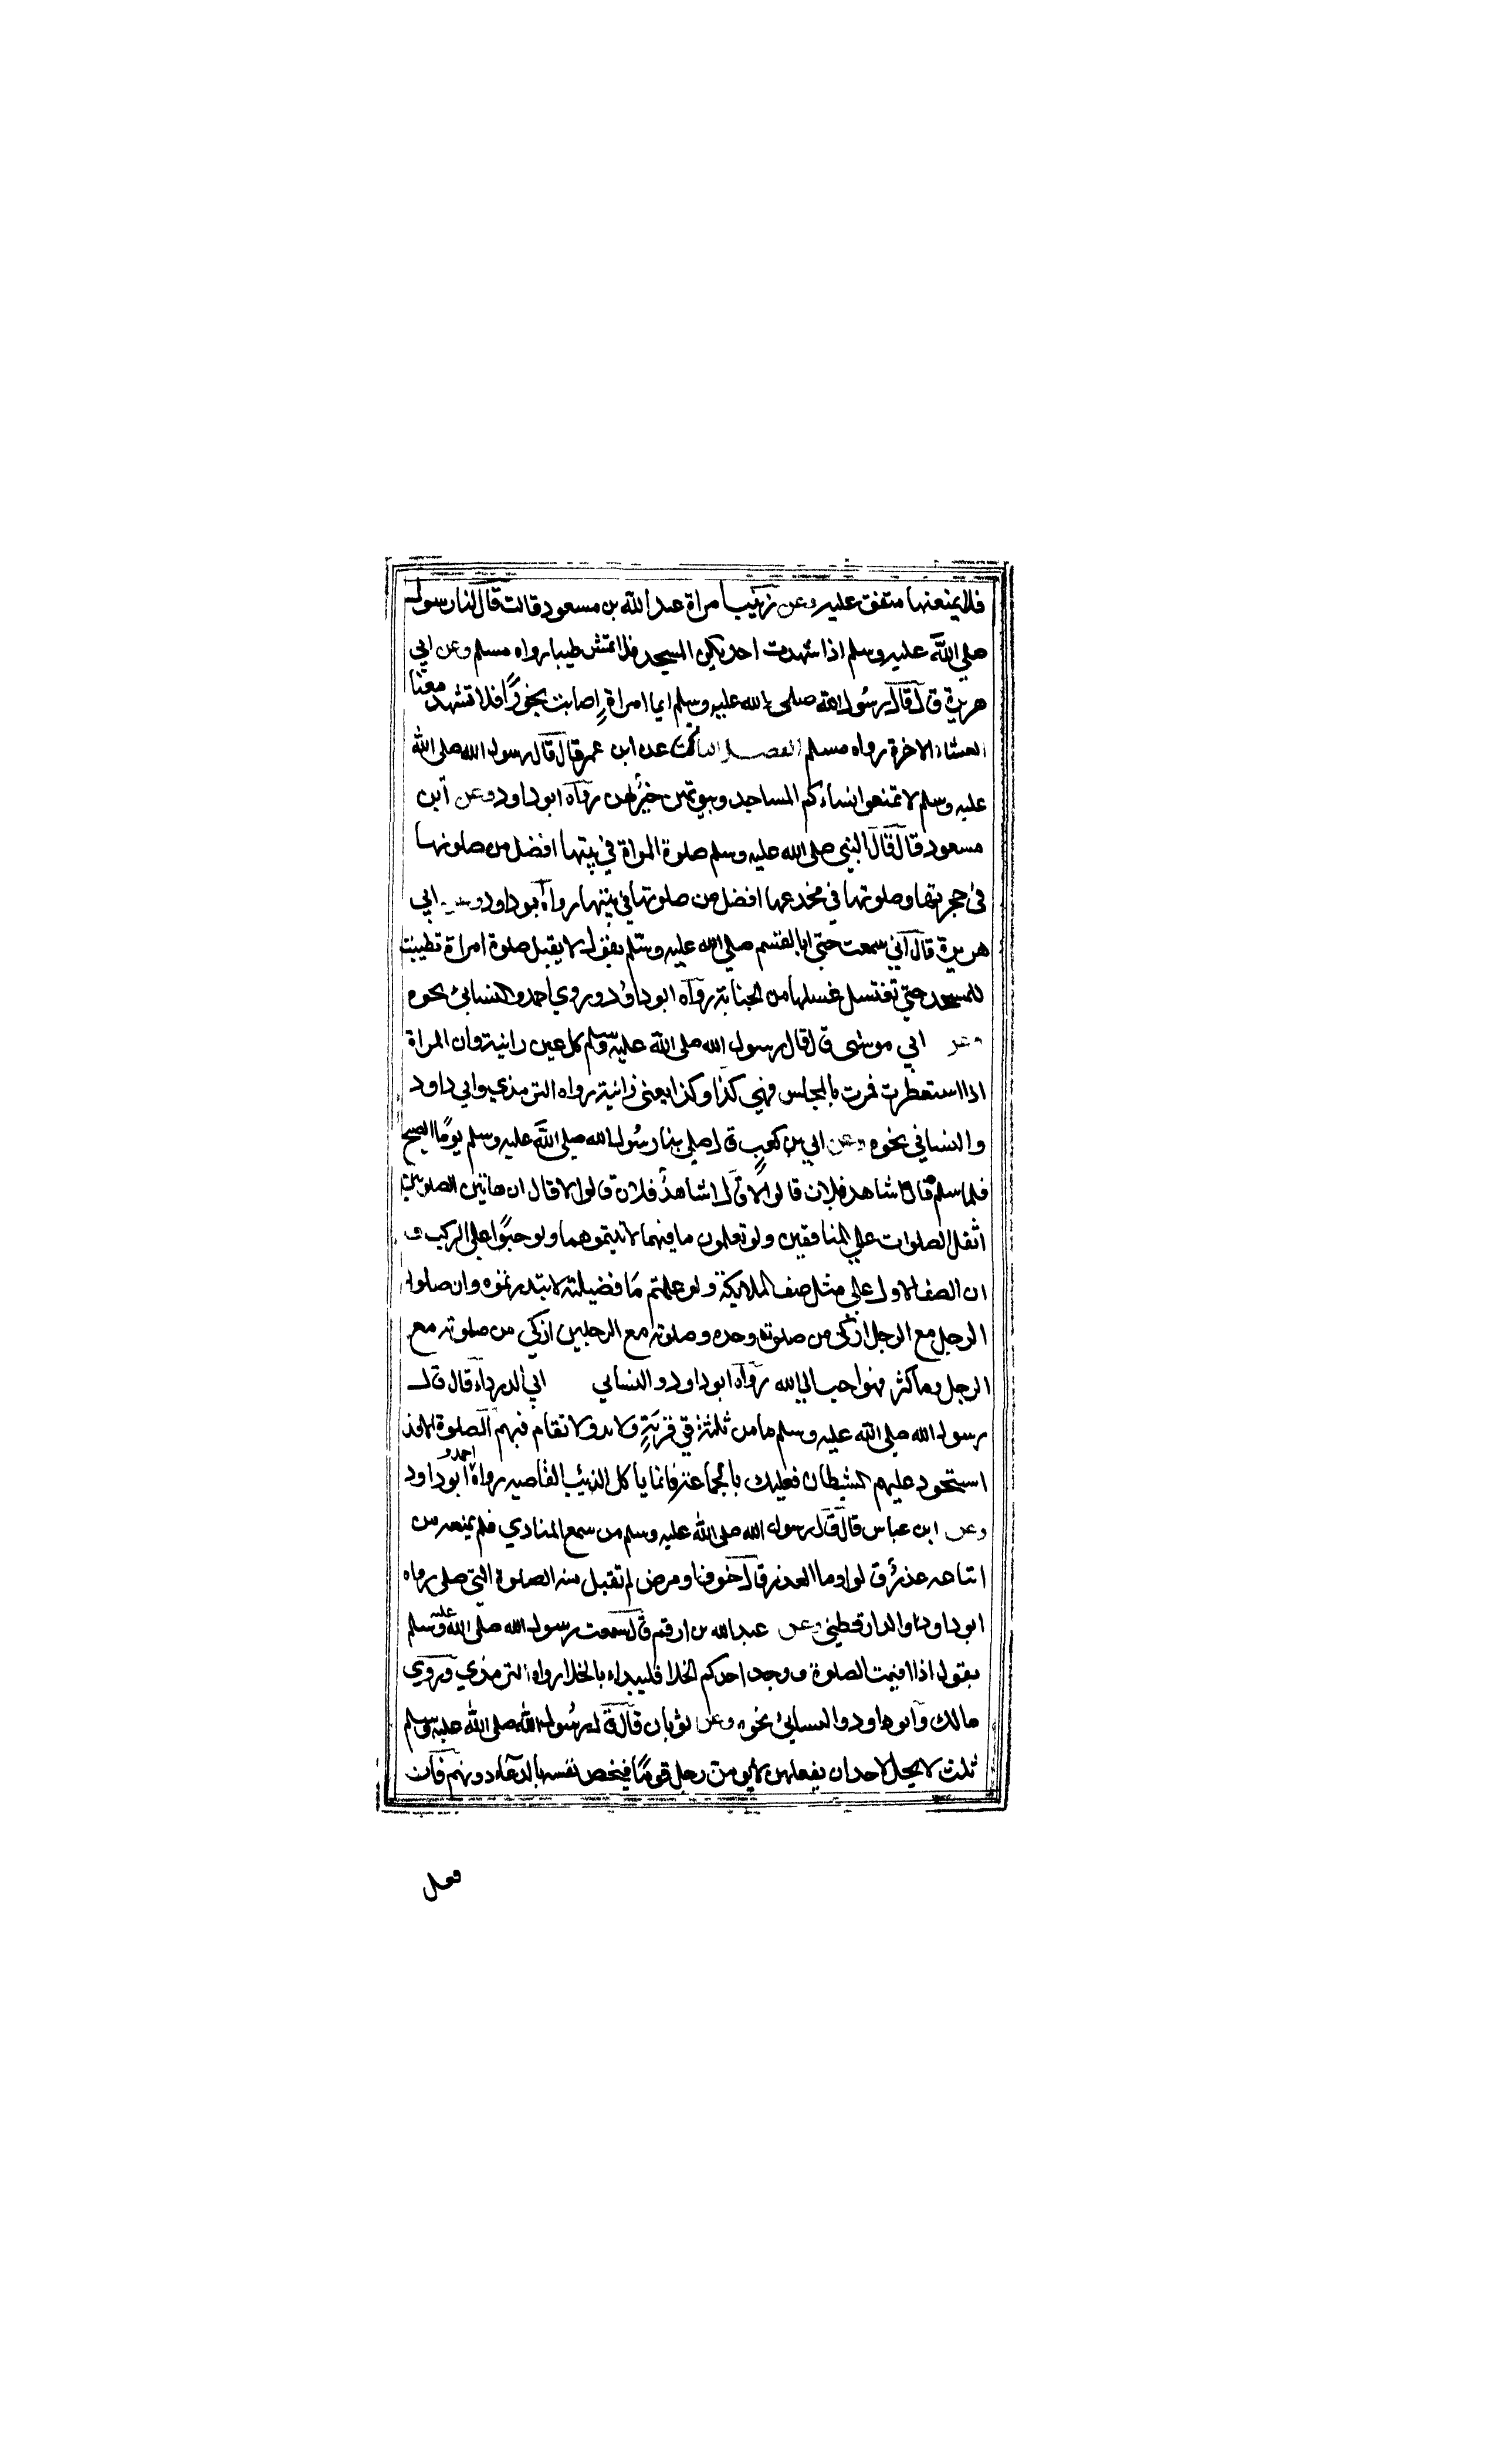 فلا يمنعنها متفق عليه وعن زينب امراة عبد الله بن مسعود قالت قال لنا رسول
صلي الله عليه وسلم اذا شهدت احديكن المسجد فلا تمش طيبا رواه مسلم وعن ابي
هريرة قال قال رسول الله صلى الله عليه وسلم ايما امراة اصابت بخورا فلا تشهد معنا
العشاء الاخرة رواه مسلم الفصل الثاني عن ابن عمر قال قال رسول الله صلى الله
عليه وسلم لا تمنعوا نساءكم المساجد وبيوتهن خير لهن رواه ابو داود وعن ابن
مسعود قال قال النبي صلى الله عليه وسلم صلوة المراة في بيتها افضل من صلوتها
في حجرتها وصلوتها في مخدعها افضل من صلوتها في بيتها رواه ابو داود وعن ابي
هريرة قال اني سمعت حبي ابا القسم صلي الله عليه وسلم يقول لا يقبل صلوة امراة تطيبت
للمسجد حتي تغتسل غسلها من الجنابة رواه ابو داود وروي احمد والنسائي نحوه
وعن ابي موسى قال قال رسول الله صلى الله عليه وسلم كل عين زانية وان المراة
اذا استعطرت فمرت بالمجلس فهي كذا وكذا يعني زانية رواه الترمذي وابي داود
والنسائي نحوه وعن ابي بن كعب قال صلي بنا رسول الله صلي الله عليه وسلم يوما الصبح
فلما سلم قال اشاهد فلان قالوا لا قال اشاهد فلان قالوا لا قال ان هاتين الصلوتين
اثقل الصلوات علي المنافقين ولو تعلمون ما فيهما لاتيتموهما ولو حبوا علي الركب و
ان الصف الاول علي مثل صف الملائكة ولو علمتم ما فضيلته لابتدرتموه وان صلوة
الرجل مع الرجل ازكى من صلوته وحده وصلوته مع الرجلين ازكي من صلوته مع
الرجل وما كثر فهو احب الي الله رواه ابو داود والنسايي ابي الدرداء قال قال
رسول الله صلي الله عليه وسلم ما من ثلثة في قرية ولا بدو لا تقام فيهم الصلوة الا قد
استحوذ عليهم الشيطان فعليك بالجماعة فانما ياكل الذئب القاصيه رواه احمد و ابو داود
وعن ابن عباس قال قال رسول الله صلى الله عليه وسلم من سمع المنادي فلم يمنعه من
اتباعه عذر قالوا وما العذر قال خوف او مرض لم تقبل منه الصلوة التي صلي رواه
ابو داود والدارقطني وعن عبد الله بن ارقم قال سمعت رسول الله صلي الله عليه وسلم
يقول اذا اقيمت الصلوة ووجد احدكم الخلا فليبداء بالخلا رواه الترمذي وروي
مالك وابو داود والنسايي نحوه وعن ثوبان قال قال رسول الله صلى الله عليه وسلم
ثلث لا يحل لاحد ان يفعلهن لا يومن رجل قوما فيخص نفسه بالدعاء دونهم فان
فعل